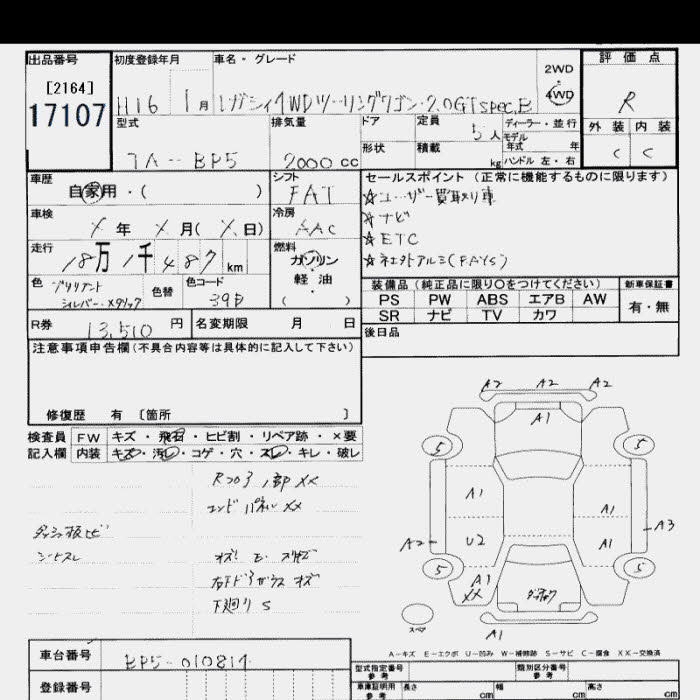 出品番号
[2164]
17107
初度登録年月
H16 1月
車名・グレード
レガシィ4WDツーリングワゴン・2.0GTspec.B
2WD
4WD
評価点
R
外装 内装
C C
型式
TA-BP5
排気量
2000 cc
ドア
定員
5人
ディーラー・並行
モデル
年式 年
形状
積載
kg
ハンドル 左・右
車歴
自家用・( )
シフト
FAT
車検
X年 X月(X日)
冷房
AAC
走行
18万1千487km
燃料
ガソリン
軽油
( )
色
ブリリアント
シルバー・メタリック
色替
色コード
39D
R券
13,510円
名変期限 月 日
セールスポイント(正常に機能するものに限ります)
☆ユーザー買取り車
☆ナビ
☆ETC
装備品(純正品に限り○をつけてください)
PS PW ABS エアB AW
SR ナビ TV カワ
新車保証書
有・無
後日品
注意事項申告欄(不具合内容等は具体的に記入して下さい)
修復歴 有 〔箇所 〕
検査員
記入欄
FW キズ・飛石・ヒビ割・リペア跡・×要
内装 キズ・汚レ・コゲ・穴・スレ・キレ・破レ
Rフロア 1部XX
エンドパネル XX
ダッシュ板ヒビ
シートスレ
下廻りS
A2 A2 A2
A1
5 5
A1 A1
A3
A2 U2 A1
5 5
A1
XX
スペア
A1
A-キズ E-エクボ U-凹み W-補修跡 S-サビ C-腐食 XX-交換済
車台番号
BP5-010814
登録番号
型式指定番号
参考
類別区分番号
参考
車庫証明用
参考
長さ cm
幅 cm
高さ cm